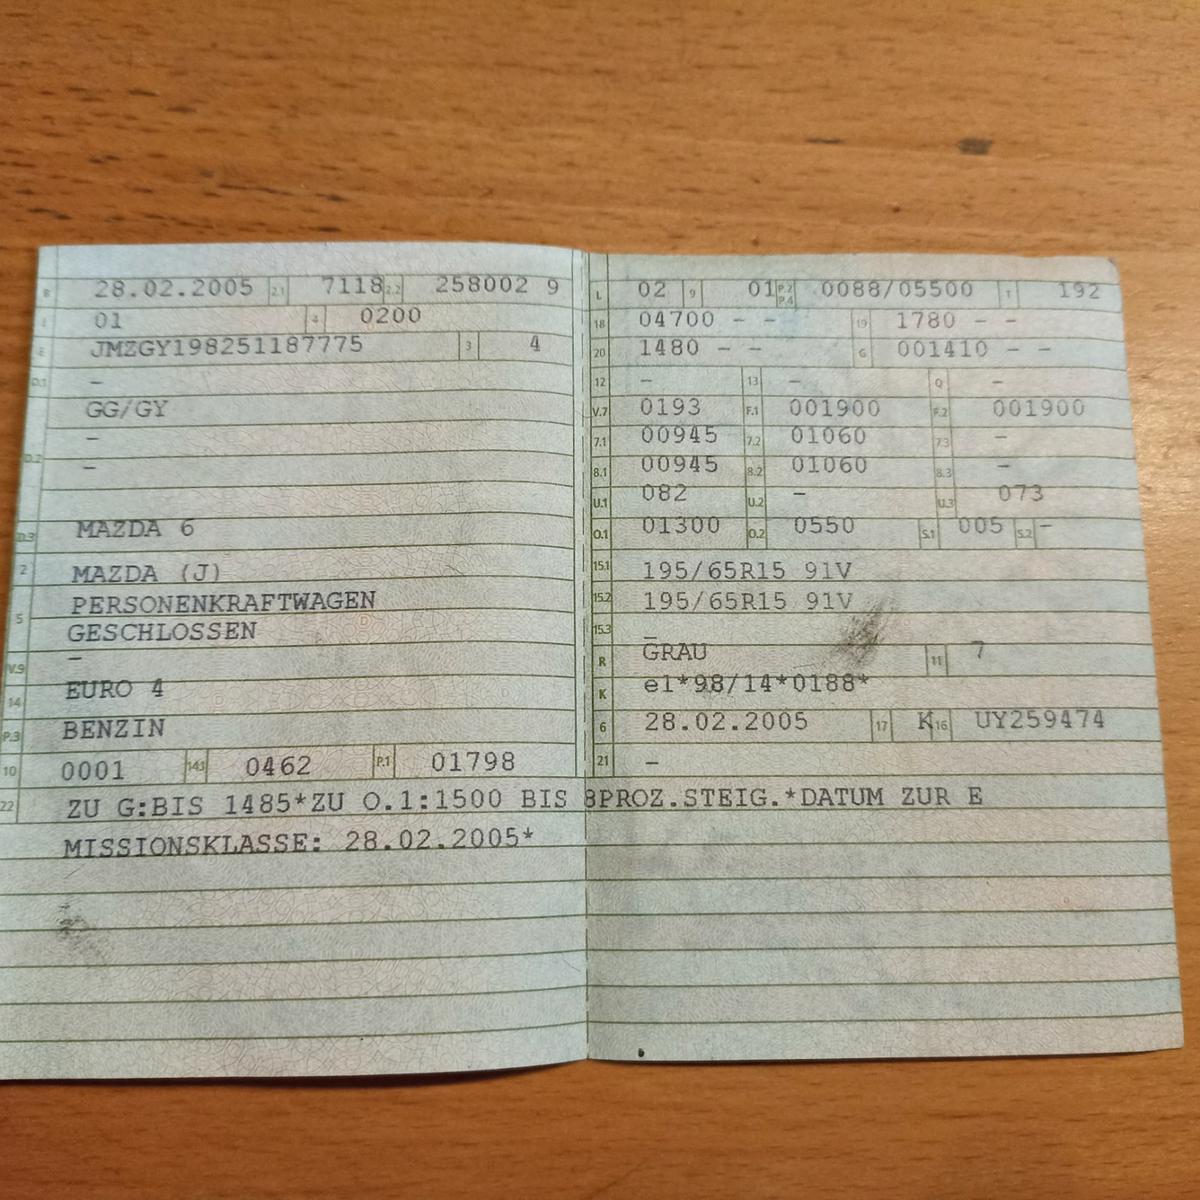 B 28.02.2005 2.1 7118 2.2 258002 9
J 01 4 0200
E JMZGY198251187775 3 4
D.1 –
GG/GY
D.2 –
–
D.3 MAZDA 6
2 MAZDA (J)
5 PERSONENKRAFTWAGEN
GESCHLOSSEN
V.9 –
14 EURO 4
P.3 BENZIN
10 0001 14.1 0462 P.1 01798
L 02 9 01 P.2 P.4 0088/05500 T 192
18 04700 – – 19 1780 – –
20 1480 – – G 001410 – –
12 – 13 – Q –
V.7 0193 F.1 001900 F.2 001900
7.1 00945 7.2 01060 7.3 –
8.1 00945 8.2 01060 8.3 –
U.1 082 U.2 – U.3 073
O.1 01300 O.2 0550 S.1 005 S.2 –
15.1 195/65R15 91V
15.2 195/65R15 91V
15.3 –
R GRAU 11 7
K e1*98/14*0188*
6 28.02.2005 17 K 16 UY259474
21 –
22 ZU G:BIS 1485*ZU O.1:1500 BIS 8PROZ.STEIG.*DATUM ZUR E
MISSIONSKLASSE: 28.02.2005*